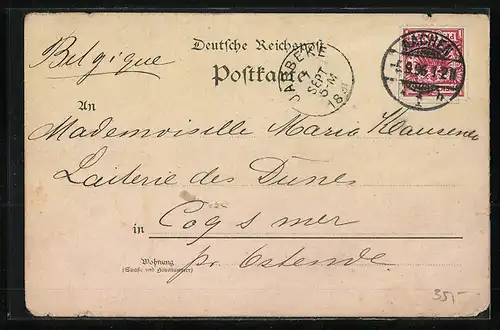 Belgique
Deutsche Reichspost
Postkarte
JABBEKE
SEPT
5-M
AACHEN
An
Mademoiselle Maria Hausener
Laiterie des Dunes
in Coq s mer
Wohnung
(Straße und Hausnummer)
pr. Ostende.
35,-